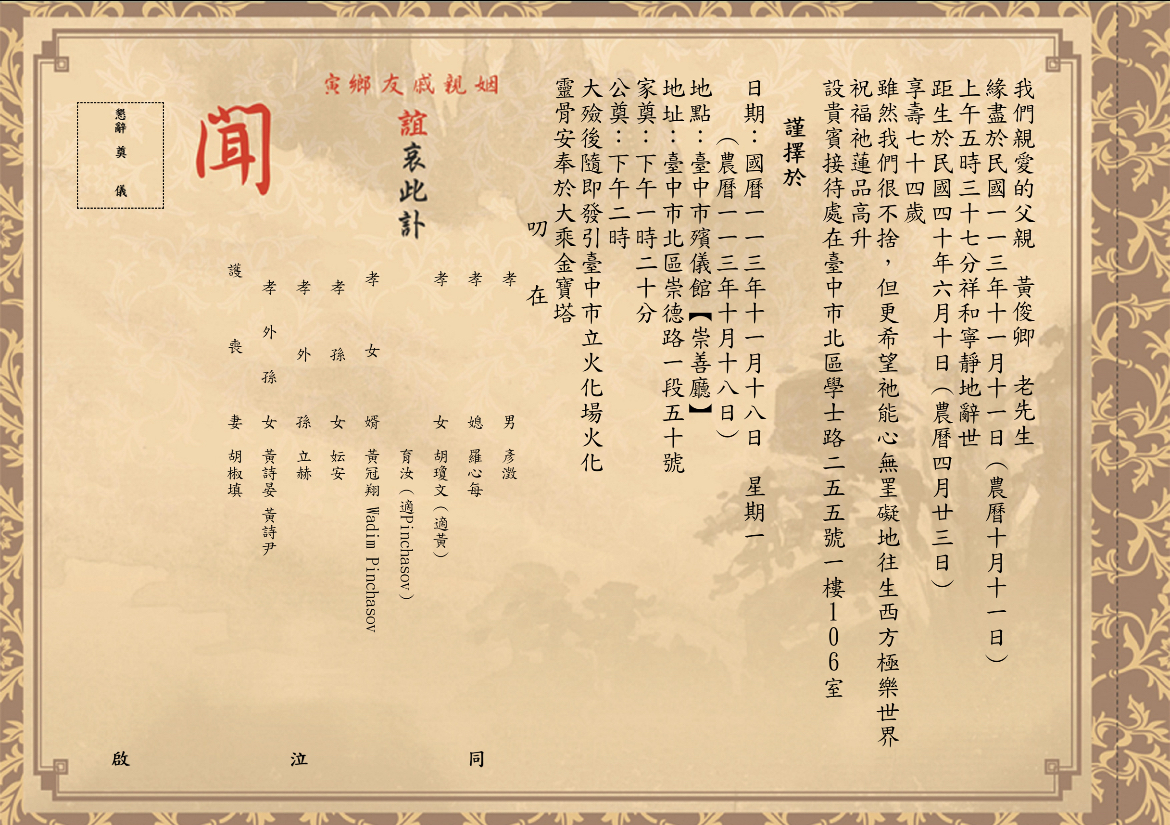 我們親愛的父親　黃俊卿　老先生
緣盡於民國一一三年十一月十一日（農曆十月十一日）
上午五時三十七分祥和寧靜地辭世
距生於民國四十年六月十日（農曆四月廿三日）
享壽七十四歲
雖然我們很不捨，但更希望祂能心無罣礙地往生西方極樂世界
祝福祂蓮品高升
設貴賓接待處在臺中市北區學士路二五五號一樓106室
謹擇於
日期：國曆一一三年十一月十八日　星期一
（農曆一一三年十月十八日）
地點：臺中市殯儀館【崇善廳】
地址：臺中市北區崇德路一段五十號
家奠：下午一時二十分
公奠：下午二時
大殮後隨即發引臺中市立火化場火化
靈骨安奉於大乘金寶塔
叨　在
孝　男　彥澂
孝　媳　羅心每
孝　女　胡瓊文（適黃）
育汝（適Pinchasov）
孝　女　婿　黃冠翔　Wadim Pinchasov
孝　孫　女　妘安
孝　外　孫　立赫
孝　外　孫　女　黃詩晏　黃詩尹
護　喪　妻　胡椒填
姻親戚友鄉寅
誼哀此訃
聞
懇辭　奠　儀
同　泣　啟